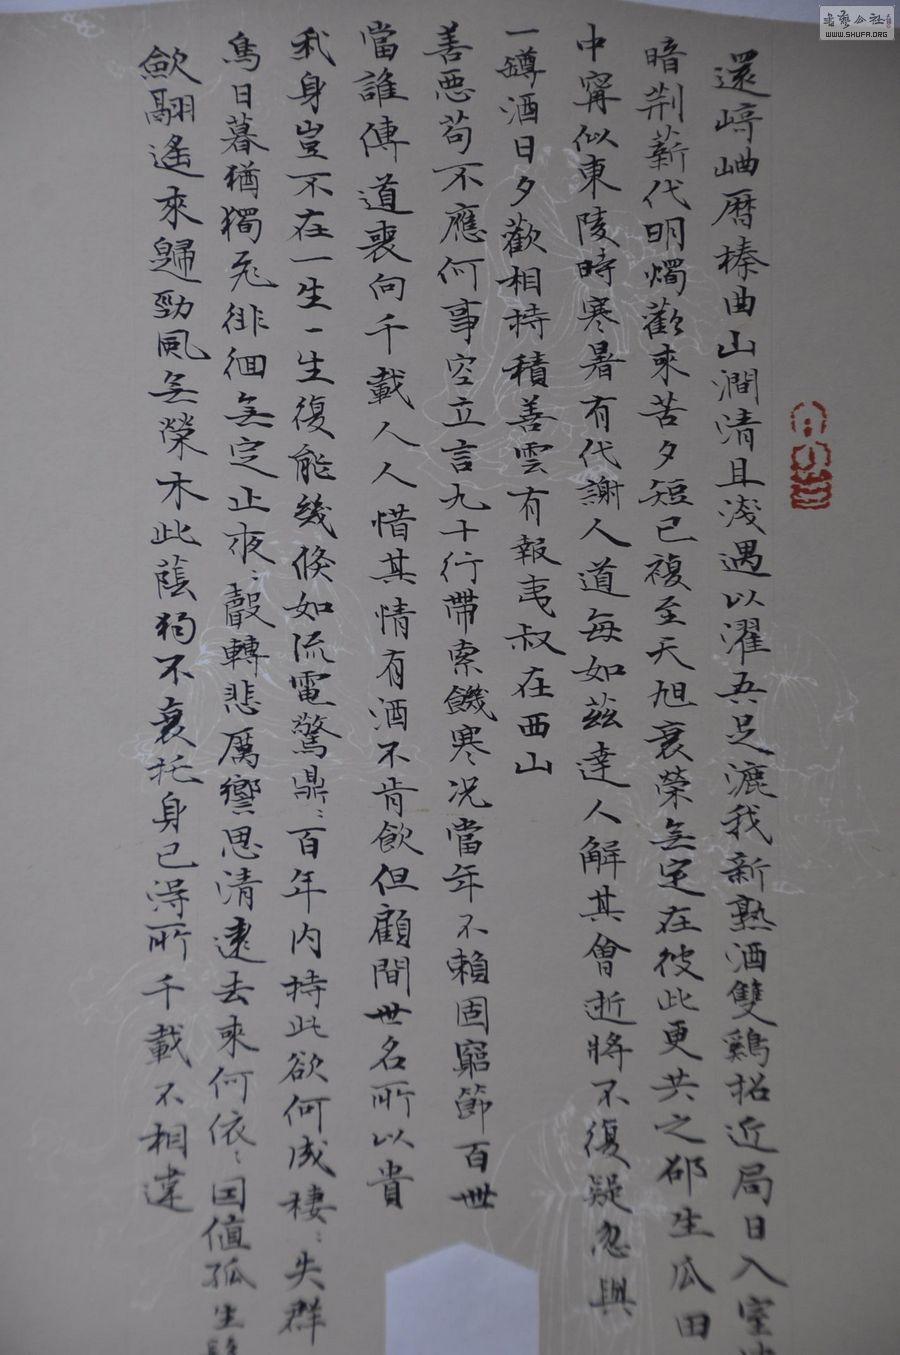 還崎嶇曆榛曲山澗清且淺遇以濯吾足漉我新熟酒雙鷄招近局日入室
暗荆薪代明燭歡來苦夕短已複至天旭衰榮無定在彼此更共之邵生瓜田
中寧似東陵時寒暑有代謝人道每如茲達人解其會逝將不復疑忽與
一罇酒日夕歡相持積善雲有報夷叔在西山
善惡苟不應何事空立言九十行帶索饑寒況當年不賴固窮節百世
當誰傳道喪向千載人人惜其情有酒不肯飲但顧間世名所以貴
我身豈不在一生一生復能幾倏如流電驚鼎:百年内持此欲何成棲:失群
鳥日暮猶獨飛徘徊無定止夜:聲轉悲厲響思清遠去來何依:因值孤生
歛翮遙來歸勁風無榮木此蔭獨不衰托身已得所千載不相違
書藝公社
WWW.SHUFA.ORG